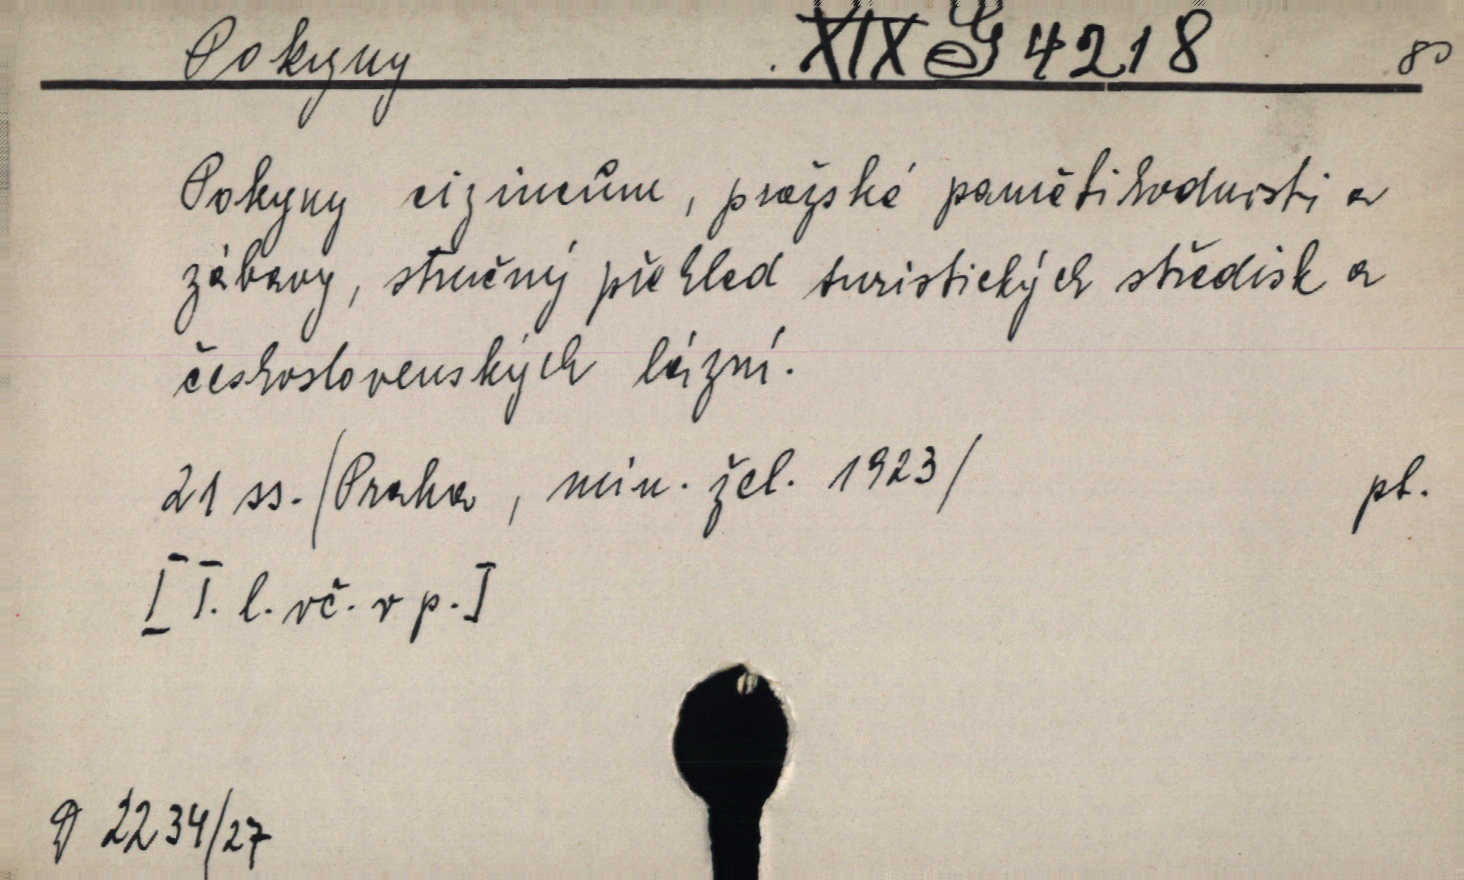 Pokyny XIX G 4218 8°
Pokyny cizincům, pražské pamětihodnosti a
zábavy, stručný přehled turistických středisk a
československých lázní.
21 ss. (Praha, min. žel. 1923) pl.
[T. l. vč. v p.]
D 2234/27